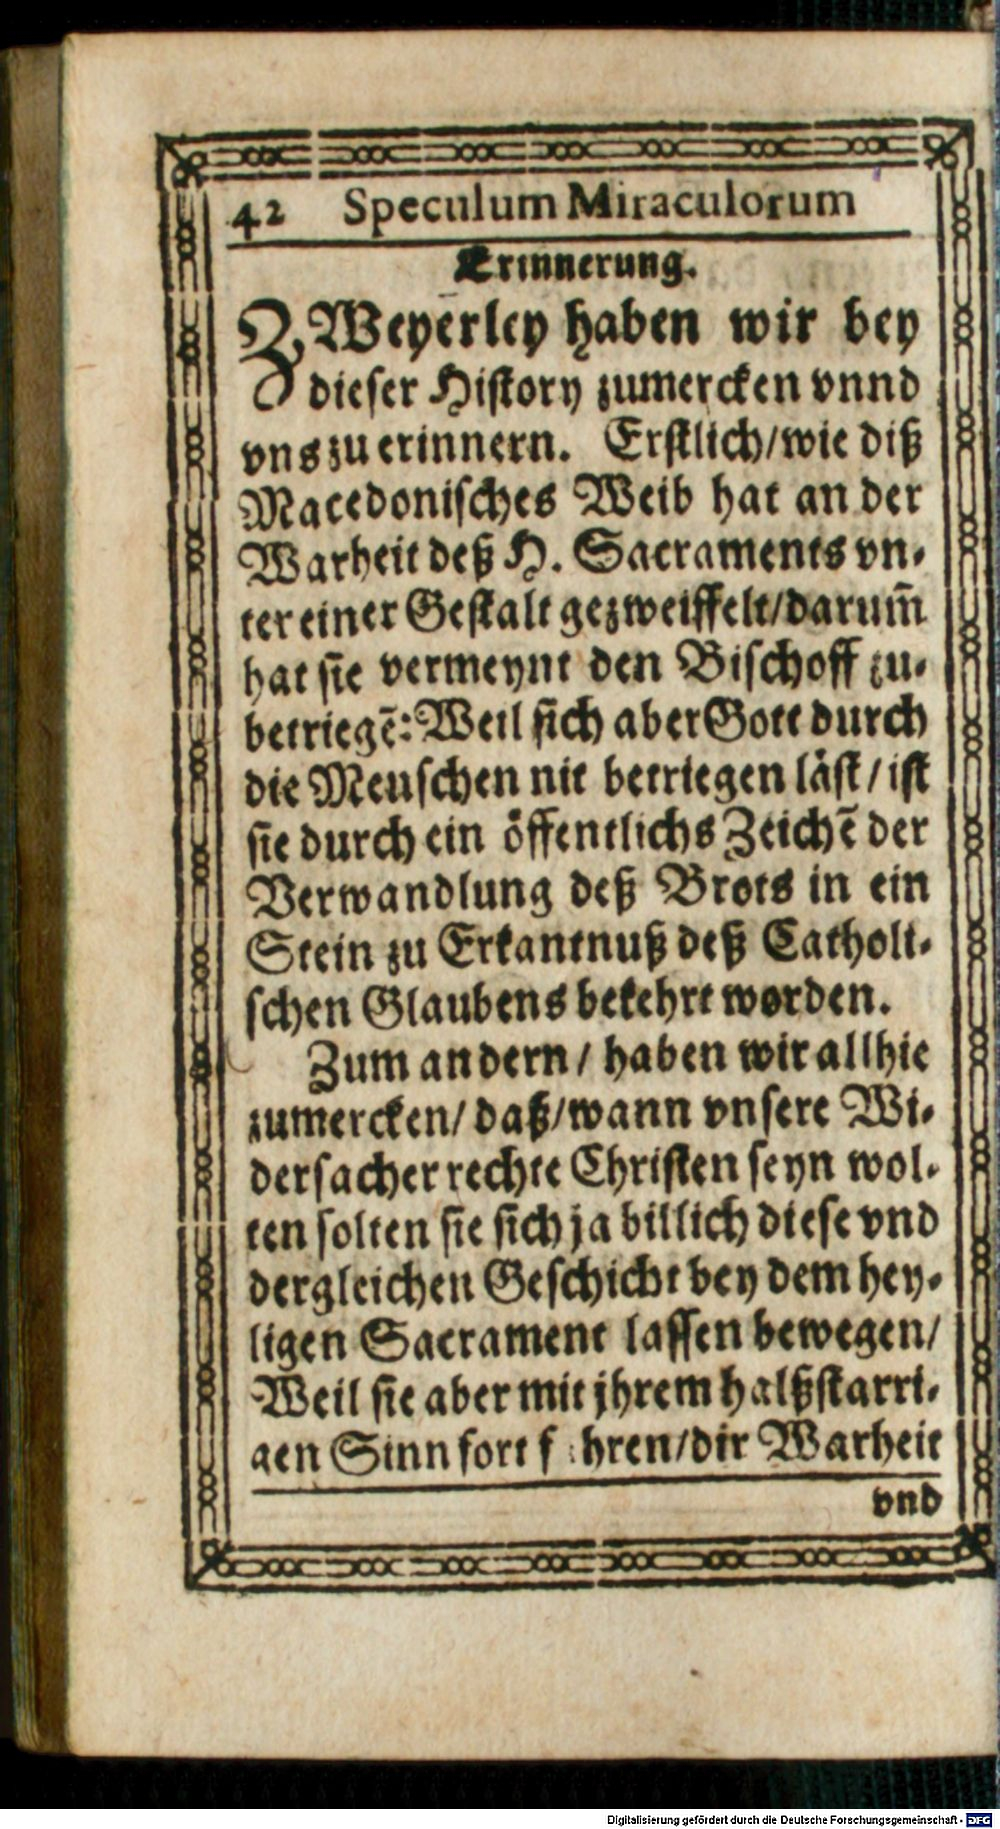 42 Speculum Miraculorum
Erinnerung.
ZWeyerley haben wir bey
dieser History zumercken vnnd
vns zu erinnern. Erstlich/wie diß
Macedonisches Weib hat an der
Warheit deß H. Sacraments vn-
ter einer Gestalt gezweiffelt/darum̃
hat sie vermeynt den Bischoff zu-
betriegẽ: Weil sich aber Gott durch
die Meuschen nit betriegen läst/ist
sie durch ein öffentlichs Zeichẽ der
Verwandlung deß Brots in ein
Stein zu Erkantnuß deß Catholi-
schen Glaubens bekehrt worden.
Zum andern/ haben wir allhie
zumercken/ daß/wann vnsere Wi-
dersacher rechte Christen seyn wol-
ten solten sie sich ja billich diese vnd
dergleichen Geschicht bey dem hey-
ligen Sacrament lassen bewegen/
Weil sie aber mit jhrem halßstarri-
gen Sinn fort f hren/dir Warheit
vnd
Digitalisierung gefördert durch die Deutsche Forschungsgemeinschaft - DFG